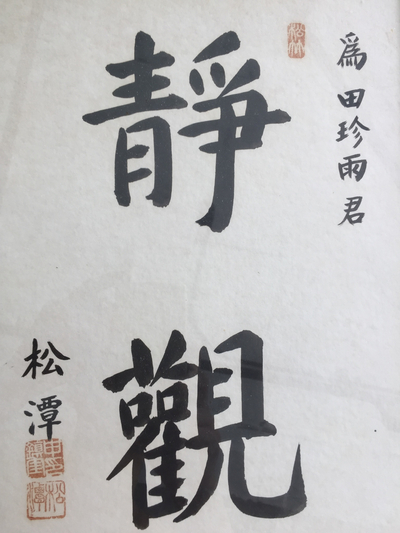 爲田珍雨君
靜觀
松潭